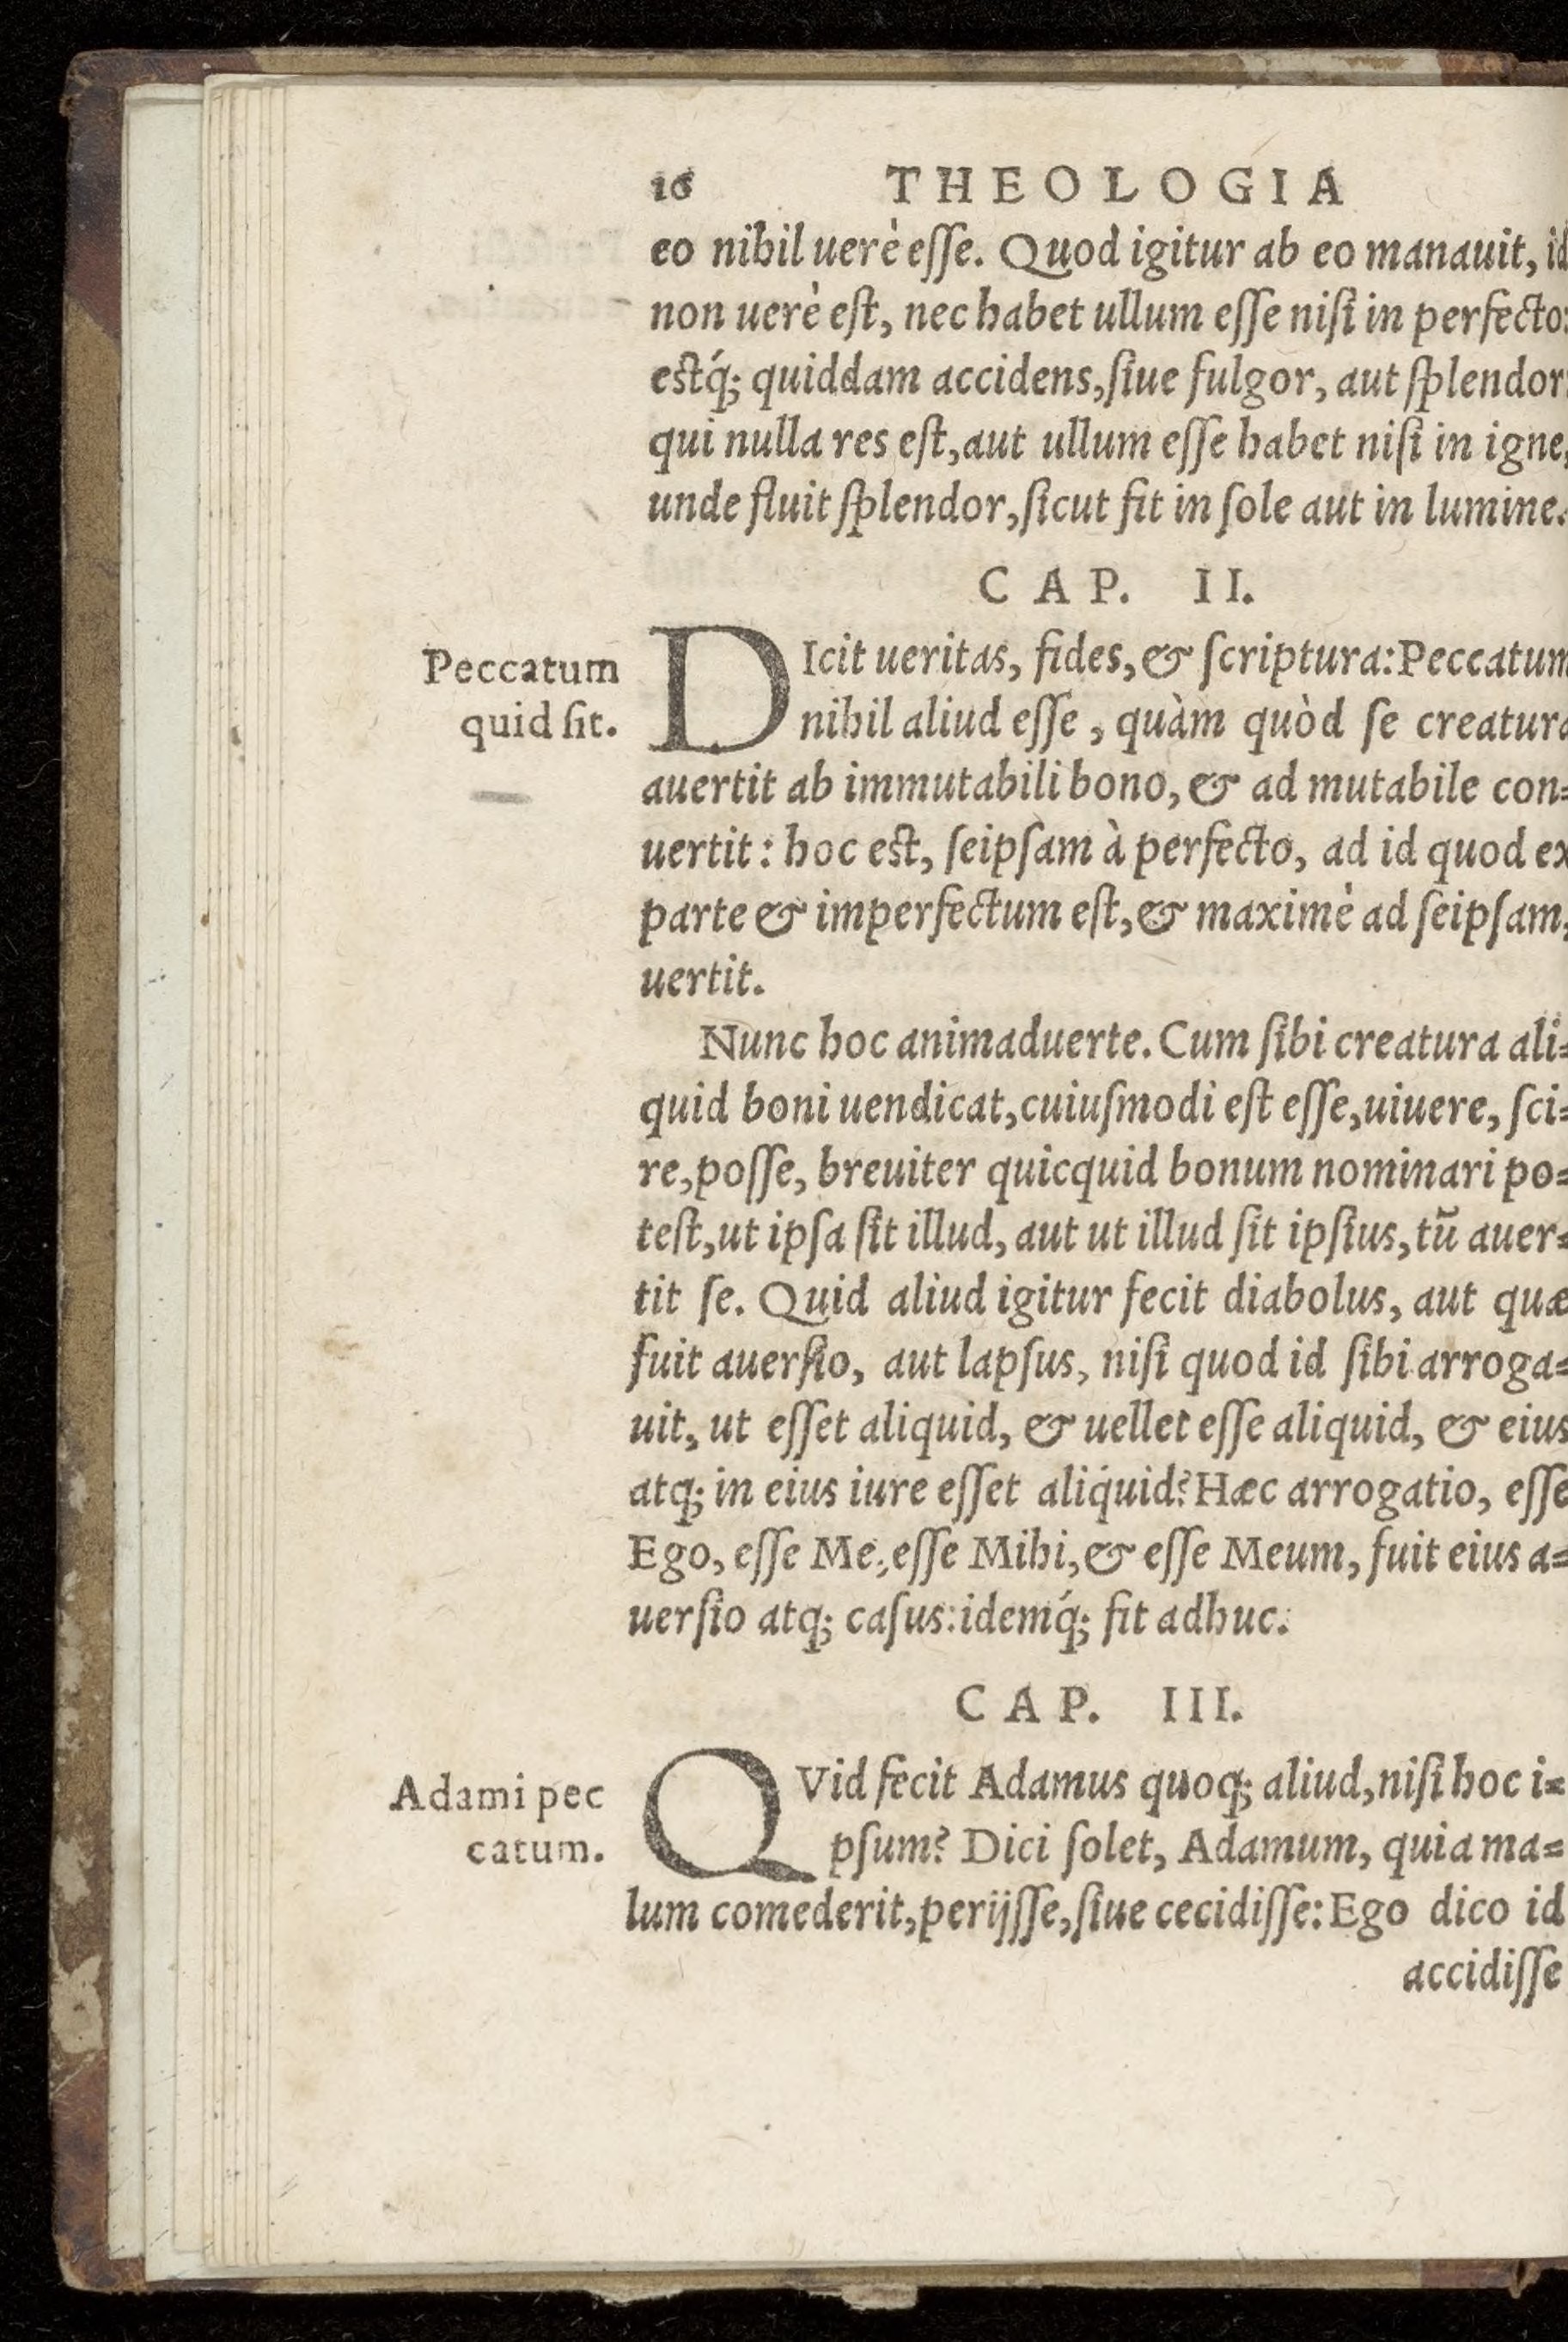 16 THEOLOGIA
eo nihil uerè eſſe. Quod igitur ab eo manauit, id
non uerè eſt, nec habet ullum eſſe niſi in perfecto:
eſtq́; quiddam accidens, ſiue fulgor, aut ſplendor,
qui nulla res eſt, aut ullum eſſe habet niſi in igne,
unde fluit ſplendor, ſicut fit in ſole aut in lumine.
CAP. II.
Peccatum
quid ſit.
DIcit ueritas, fides, & ſcriptura: Peccatum
nihil aliud eſſe, quàm quòd ſe creatura
auertit ab immutabili bono, & ad mutabile con=
uertit: hoc eſt, ſeipſam à perfecto, ad id quod ex
parte & imperfectum eſt, & maximè ad ſeipſam,
uertit.
Nunc hoc animaduerte. Cum ſibi creatura ali=
quid boni uendicat, cuiuſmodi eſt eſſe, uiuere, ſci=
re, poſſe, breuiter quicquid bonum nominari po=
teſt, ut ipſa ſit illud, aut ut illud ſit ipſius, tū auer=
tit ſe. Quid aliud igitur fecit diabolus, aut quæ
fuit auerſio, aut lapſus, niſi quod id ſibi arroga=
uit, ut eſſet aliquid, & uellet eſſe aliquid, & eius
atq; in eius iure eſſet aliquid? Hæc arrogatio, eſſe
Ego, eſſe Me, eſſe Mihi, & eſſe Meum, fuit eius a=
uerſio atq; caſus: idemq́; fit adhuc.
CAP. III.
Adami pec
catum.
QVid fecit Adamus quoq; aliud, niſi hoc i=
pſum? Dici ſolet, Adamum, quia ma=
lum comederit, perijſſe, ſiue cecidiſſe: Ego dico id
accidiſſe